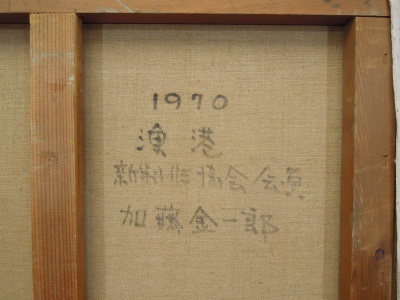 1970
漁港
新制作協会会員
加藤金一郎